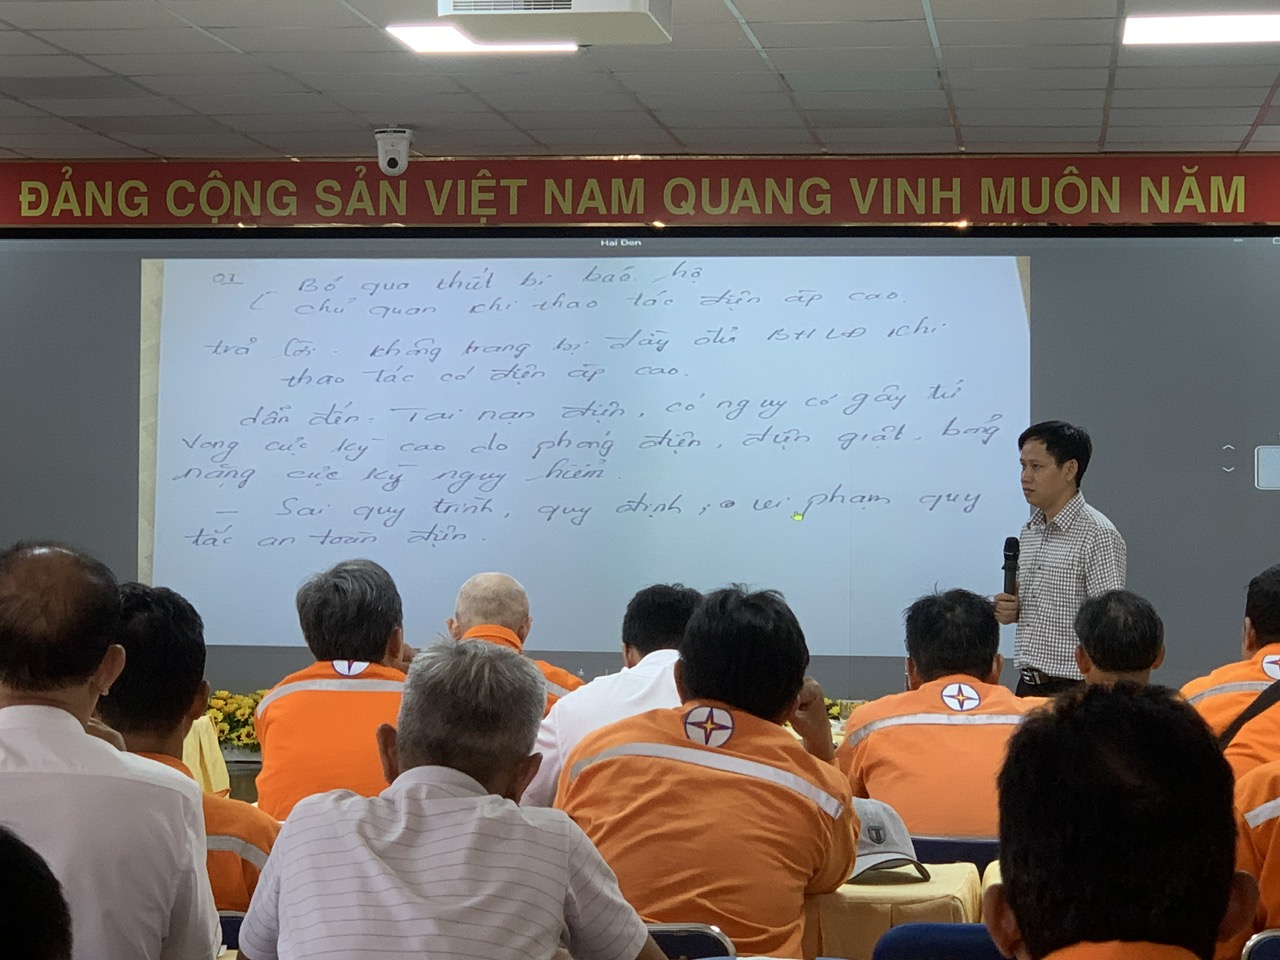 ĐẢNG CỘNG SẢN VIỆT NAM QUANG VINH MUÔN NĂM
Hai Den
01 Bỏ qua thiết bị bảo hộ
( chủ quan khi thao tác điện áp cao.
trả lời - không trang bị đầy đủ BHLĐ khi
thao tác có điện áp cao.
dẫn đến - Tai nạn điện, có nguy cơ gây tử
vong cực kỳ cao do phóng điện, điện giật, bỏng
nặng cực kỳ nguy hiểm.
- Sai quy trình, quy định, vi phạm quy
tắc an toàn điện.